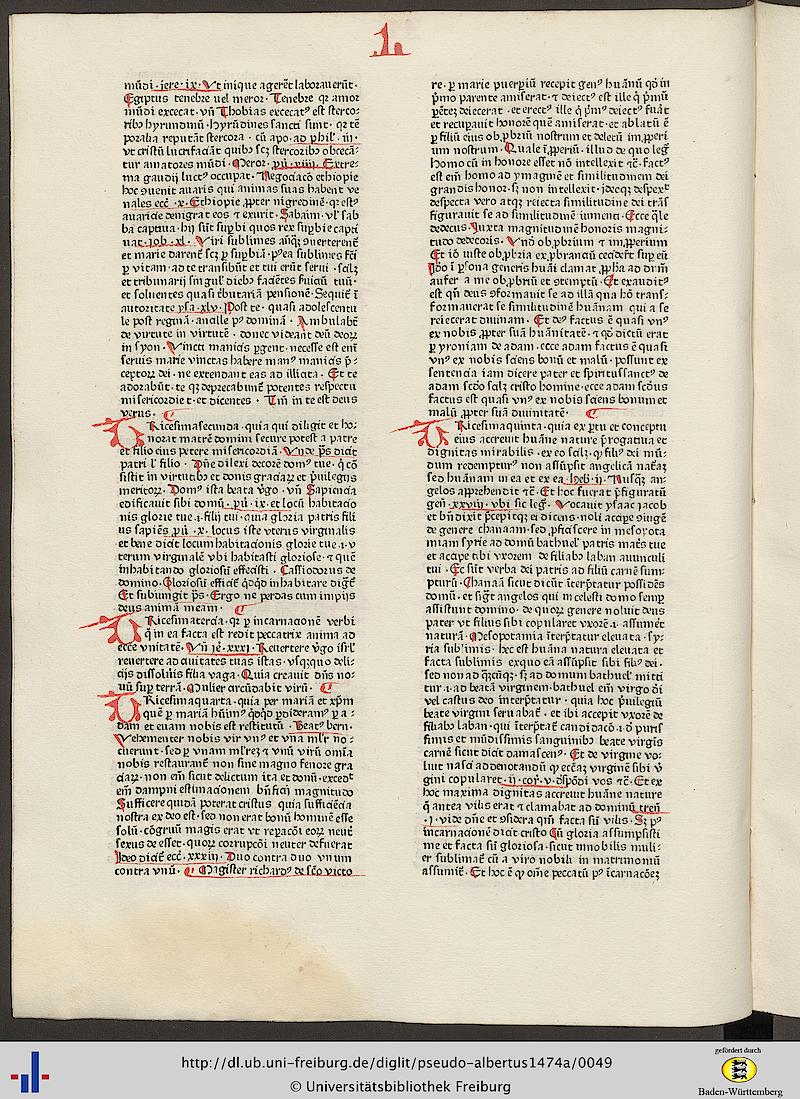 L
mūdi · iere · ix · Ut inique agerēt laborauerūt ·
Egiptus tenebre uel meror · Tenebre qꝛ amor
mūdi excecat · vn̄ Thobias excecatꝰ est sterco-
ribꝰ hyrundinū · hyrūdines sancti sunt · qꝛ tē
poralia reputāt stercora · cū apo · ad phil' · iij ·
vt cristū lucrifaciāt quibꝰ scꝫ stercoribꝰ obcecā-
tur amatores mūdi · Meror · ꝓū · xiiij · Extre-
ma gaudij luctꝰ occupat · Negociacō ethiopie
hoc ꝯuenit auaris qui animas suas habent ve
nales ecc̄ · x · Ethiopie ꝓpter nigredinē · qꝛ estꝰ
auaricie denigrat eos ⁊ exurit · Sabaim · vl' sab
ba captiua · hij sūt suꝑbi quos rex suꝑbie capti
uat · iob · xl · Viri sublimes
et marie darent̄ scꝫ ꝑ suꝑbiā · pꝰea sublimes fc̄i
ꝑ vitam · ad te transibūt et tui erūt serui · sclꝫ
et tributarij singul' diebꝰ faciētes ẜuiciū tuū ·
et soluentes quasi tributariā pensionē · Sequit̄ ī
autoritate ysa · xlv · Post te · quasi adolescentu
le post reginā · ancille pꝰ dominā · Ambulabt̄
de virtute in virtutē · donec videant deū deoꝝ
in syon · Vincti manicis ꝑgent · necesse est enī
seruis marie vinctas habere manꝰ manicis p̄-
ceptoꝝ dei · ne extendant eas ad illicita · Et te
adorabūt · te qꝫ deprecabunt̄ potentes respectu
misericordie t · et dicentes · Tm̄ in te est deus
verus ·
TRicesimasecunda · quia qui diligit et ho-
norat matrē domini secure potest a patre
et filio eius petere misericordiā · Vnde ps̄ dicit
patri l' filio · Dn̄e dilexi decorē domꝰ tue · q̄ cō
sistit in virtutibꝰ et donis graciaꝝ et p̄uilegijs
meritoꝝ · Domꝰ ista beata v̄go · vn̄ Sapiencia
edificauit sibi domū · ꝓū · ix · et locū habitacio
nis glorie tue · ı · filij tui · quia gloria patris fili
us sapiēs ꝓū · x · locus iste vterus virginalis
et bene dicit locum habitacionis glorie tue · ı · v
terum virginalē vbi habitasti gloriose · ⁊ quē
inhabitando gloriosū effecisti · Cassiodorus de
domino · Gloriosū efficit q̄dq̄d inhabitare digt̄
Et subiungit ps̄ · Ergo ne perdas cum impijs
deus animā meam ·
TRicesimatercia · qꝛ ꝑ incarnacionē verbi
q̄ in ea facta est redit peccatrix anima ad
ecce vnitatē · Vn̄ ie͛ · xxxi · Reuertere v̄go isrl'
reuertere ad ciuitates tuas istas · vsqꝫquo deli-
cijs dissolūis filia vaga · Quia creauit dn̄s no-
uū suꝑ terrā · Mulier circūdabit virū ·
TRicesimaquarta · quia per mariā et xp̄m
quē ꝑ mariā hūimꝰ q̄dq̄d ꝑdideramꝰ ꝑ a-
dam et euam nobis est restitutū · Beatꝰ bern ·
Vehementer nobis vir vnꝰ et vna ml'r no-
cuerunt · sed ꝑ vnam ml'reꝫ ⁊ vnū virū om̄ia
nobis restaurant̄ non sine magno fenore gra
ciaꝝ · non em̄ sicut delictum ita et donū · excedt̄
em̄ dampni estimacionem bn̄ficij magnitudo
Sufficere quidā poterat cristus quia sufficiēcia
nostra ex deo est · sed non erat bonū hominē esse
solū · cōgruū magis erat vt repacōi eoꝝ neut'
sexus de esset · quoꝝ corrupcōi neuter defuerat
Ideo dicit̄ ecc̄ · xxxiij · Duo contra duo vnum
contra vnū · Magister richardꝰ de sc̄o victo
re · ꝑ marie puerꝑiū recepit genꝰ huānū qd̄ in
p̄mo parente amiserat · ⁊ deiectꝰ est ille q̄ p̄mū
pēteꝫ deiecerat · et erectꝰ ille q̄ p̄mꝰ deiectꝰ fuāt
et recuꝑauit honorē quē amiserat · et ablatū ē
ꝑ filiū eiꝰ oꝓbriū nostrum et deletū imꝓperi
um nostrum · Quale īꝓeriū · illud de quo legr̄
Homo cū in honore esset nō intellexit ⁊c̄ · factꝰ
est em̄ homo ad ymaginē et similitudinem dei
grandis honor · sꝫ non intellexit · ideoqꝫ despext̄
despecta vero atqꝫ reiecta similitudine dei trās
figurauit se ad similitudinē iumenti · Ecce q̄le
dedecus · Iuxta magnitudinē honoris magni-
tudo dedecoris · Vnō oꝓbrium ⁊ imꝓperium
Et iō iuste oꝓbria exꝓbranciū ceciderūt suꝑ eū
Idō ī ꝑsona generis huāi clamat ꝓpha ad dn̄m
aufer a me oꝓbriū et ꝯtemptū · Et exaudit̄ꝰ
est qn̄ deus ꝯformauit se ad illā qua hō trans-
formauerat se similitudinē huānam qui a se
reiecerat diuinam · Et deꝰ factus ē quasi vnꝰ
ex nobis ꝓpter suā huānitatē · ⁊ qd̄ dictū erat
ꝑ yroniam de adam · ecce adam factus ē quasi
vnꝰ ex nobis sciens bonū et malū · possunt ex
sentencia iam dicere pater et spiritussanctꝰ de
adam scd̄o sclꝫ cristo homine · ecce adam scd̄us
factus est quasi vnꝰ ex nobis sciens bonum et
malū ꝓpter suā diuinitatē ·
TRicesimaquinta · quia ex ꝑtu et conceptu
eius accreuit huāne nature p̄rogatiua et
dignitas mirabilis · ex eo sclꝫ · q̄ filiꝰ dei mū-
dum redempturꝰ non assūpsit angelicā nat̄aꝫ
sed huānam in ea et ex ea · heb̄ · ij · Nusqꝫ an-
gelos apprehendit ⁊c̄ · Et hoc fuerat p̄figuratū
gen̄ · xxviij · vbi sic legr̄ · Vocauit ysaac iacob
et bn̄dixit p̄cepitqꝫ ei dicens · noli accipe ꝯiugē
de genere chanaan · sed ꝓficiscere in mesopota
miam syrie ad domū bathuel' patris matr̄s tue
et accipe tibi vxorem de filiabꝰ laban auunculi
tui · Ec sūt verba dei patris ad filiū carnē sum-
pturū · Chanaā sicut dicūt īterp̄tatur possidēs
domū · et sigt̄ angelos qui in celesti domo semꝑ
assistunt domino · de quoꝝ genere noluit deus
pater vt filius sibi copularet vxorē · ı · assumēt
naturā · Mesopotamia īterp̄tatur eleuata · sy-
ria sub'imis · hec est huāna natura eleuata et
facta sublimis exquo eā assūpsit sibi filiꝰ dei ·
sed non ad q̄scūqꝫ · sꝫ ad domum bathuel' mitti
tur · ı · ad beatā virginem · bathuel em̄ virgo d̄i
vel castus deo interp̄tatur · quia hoc p̄uilegiū
beate virgini seruabat̄ · et ibi accepit vxorē de
filiabꝰ laban · qui īterp̄tat̄ candidacō · ı · d̄ puris
simis et mūdissimis sanguinibꝰ beate virgīs
carnē sicut dicit damascenꝰ · Et de virgine vo-
luit nasci ad denotandū q̄ eccaꝫ virginē sibi v̄
gini copularet · ij · coꝝ · v · d̄spōdi vos ⁊c̄ · Et ex
hoc maxima dignitas accreuit huāne nature
q̄ antea vilis erat ⁊ clamabat ad dominū tren̄
· i · vide dn̄e et ꝯsidera qm̄ facta sū vilis · Sꝫ pꝰ
incarnacionē dicit cristo Cū gloria assumpsisti
me et facta sū gloriosa · sicut innobilis muli-
er sublimat̄ cū a viro nobili in matrimoniū
assumit̄ · Et hoc ē q̄ om̄e peccatū pꝰ īcarnacōeꝫ
http://dl.ub.uni-freiburg.de/diglit/pseudo-albertus1474a/0049
© Universitätsbibliothek Freiburg
gefördert durch
Baden-Württemberg